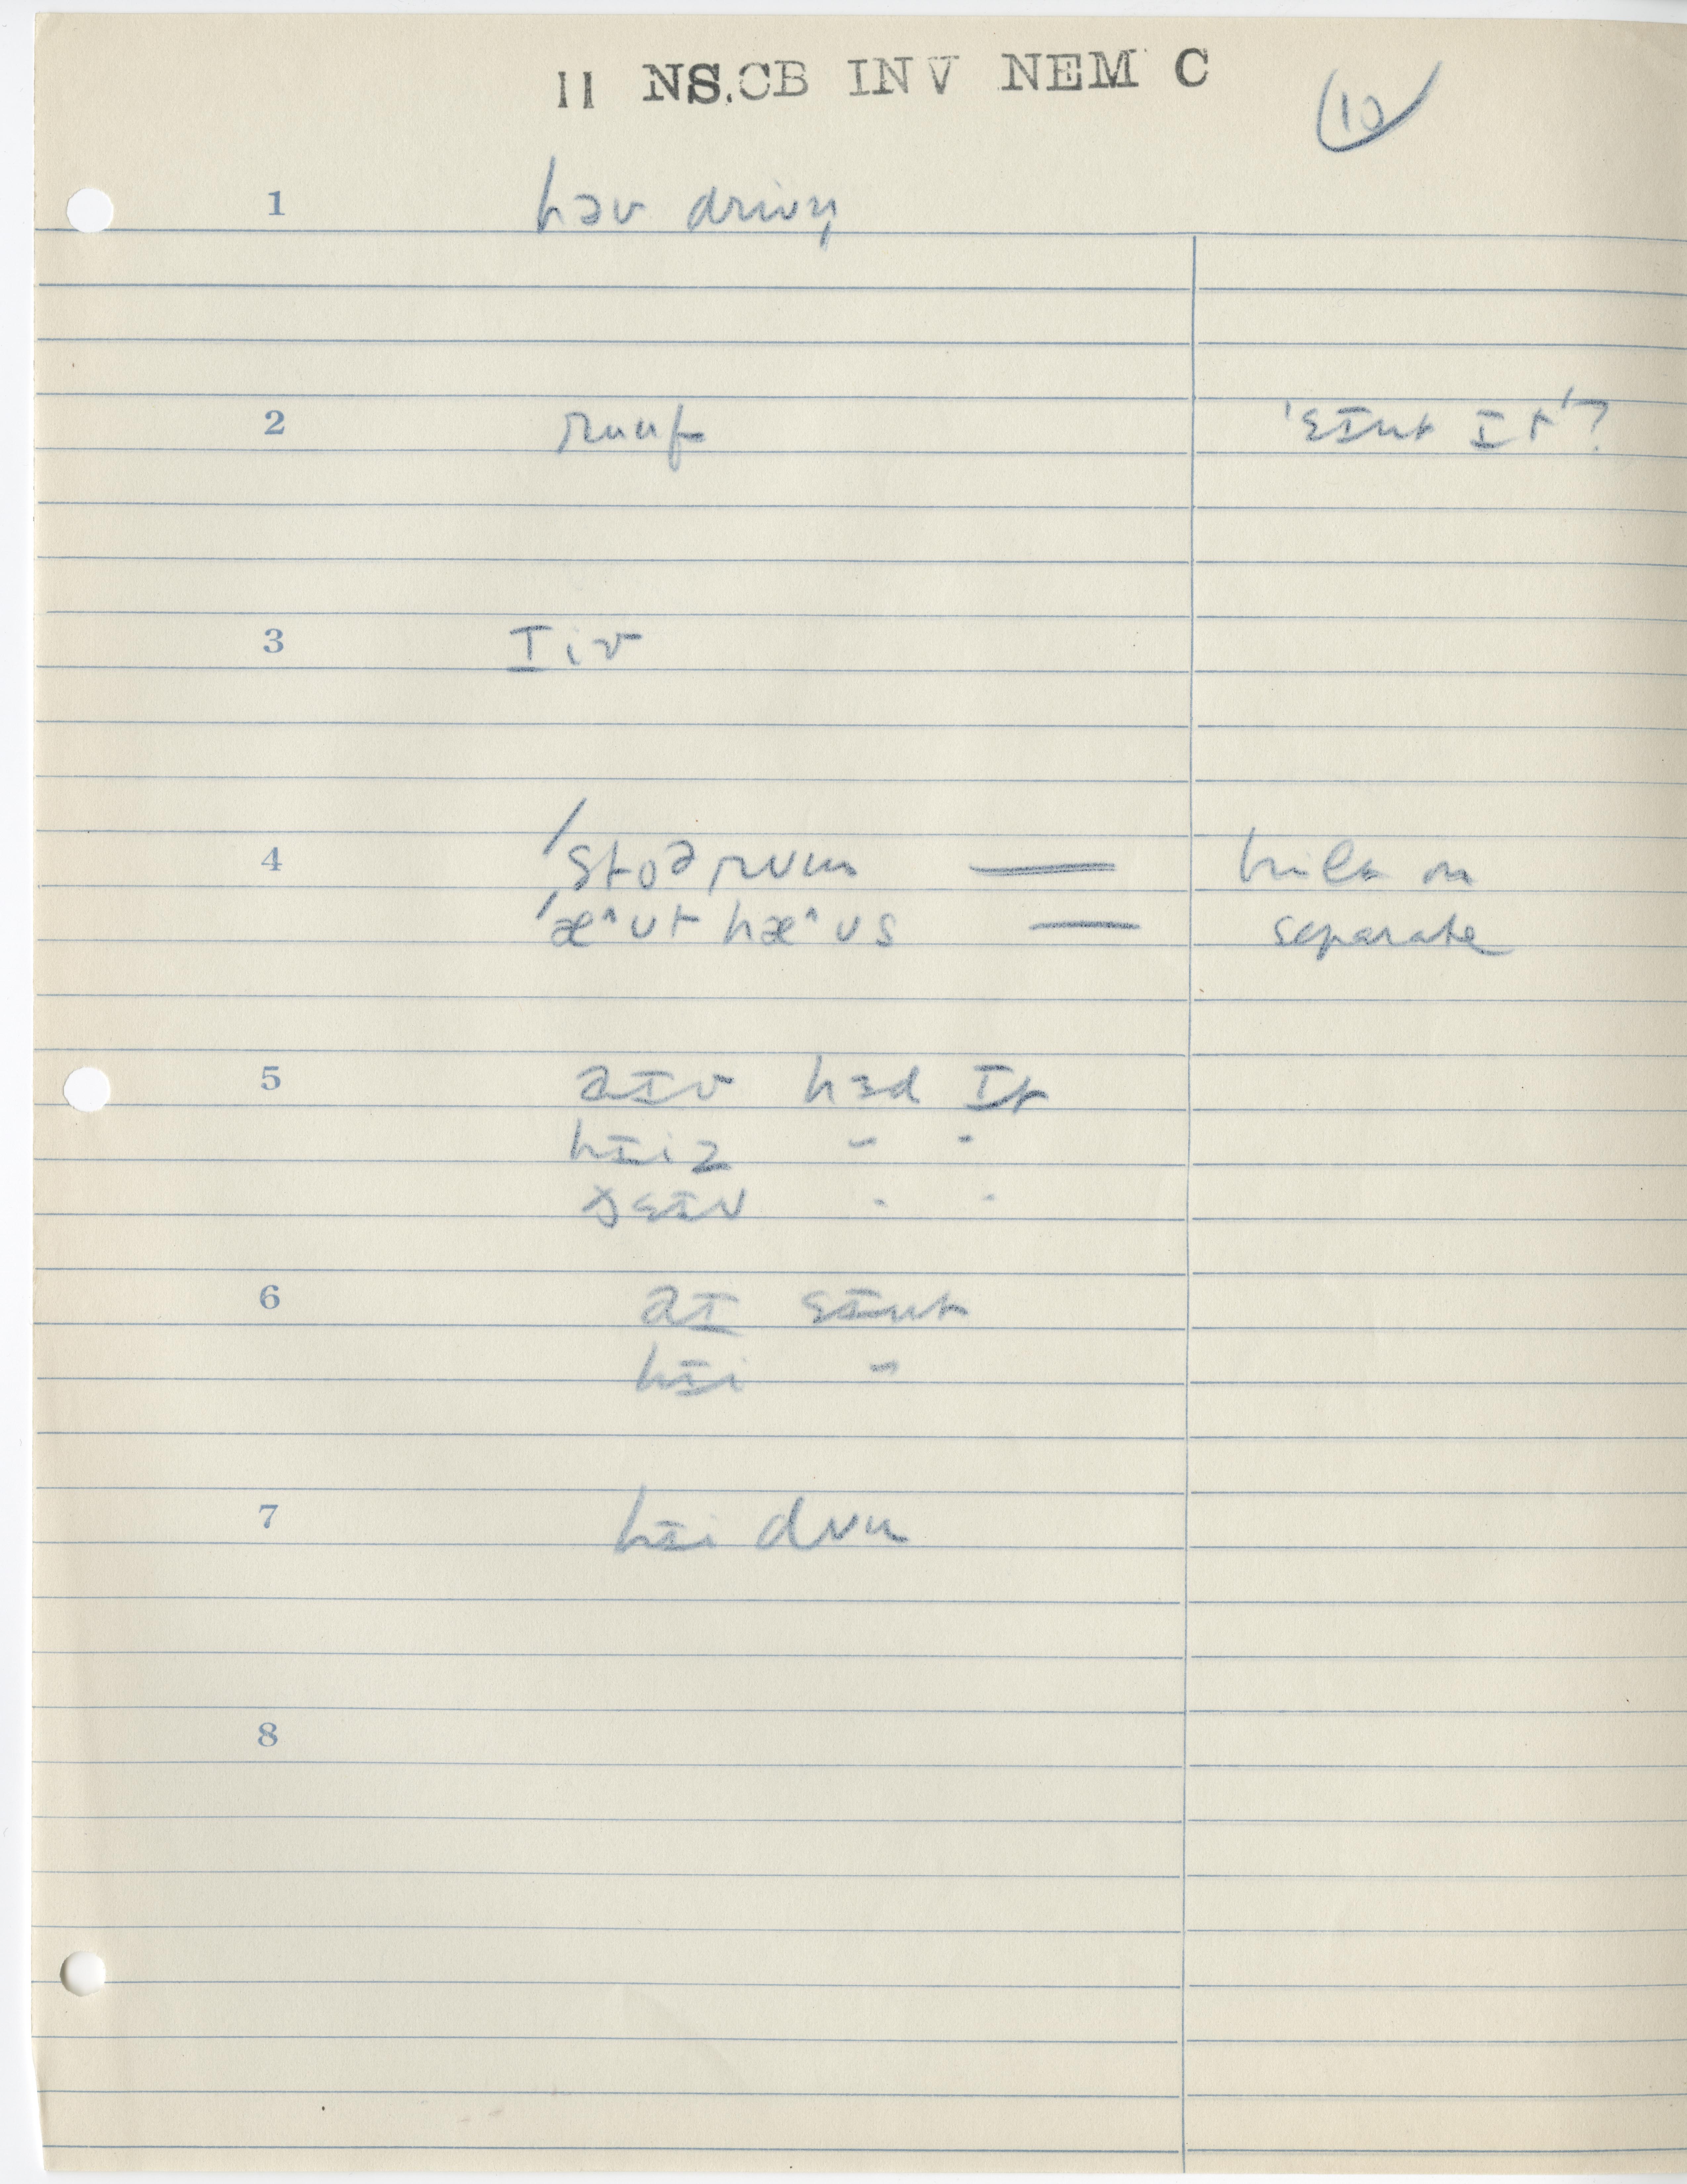 11 NS.CB INV NEM C
10
1 həv drivn̩
2 ruuf 'ɛɪnt ɪt'?
3 ɪiv
4 'stoəˌrum — built on
'æ^ʊt hæ^ʊs — separate
5 əɪv hɜd ɪt
hɪiz " "
ðɛɪv " "
6 əɪ ɛɪnt
hɪi "
7 hɪi
8